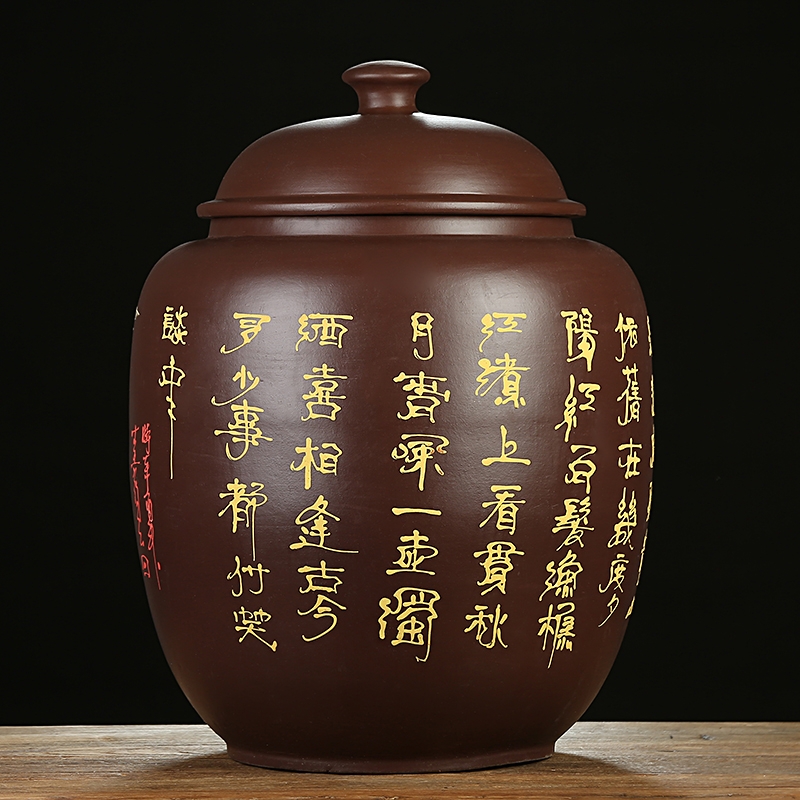 依舊在幾度夕
陽紅白髮漁樵
江渚上看貫秋
月春風一壺濁
酒喜相逢古今
多少事都付笑
談中